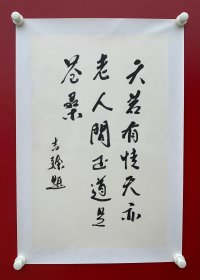 天若有情天亦
老人間正道是
蒼桑
題